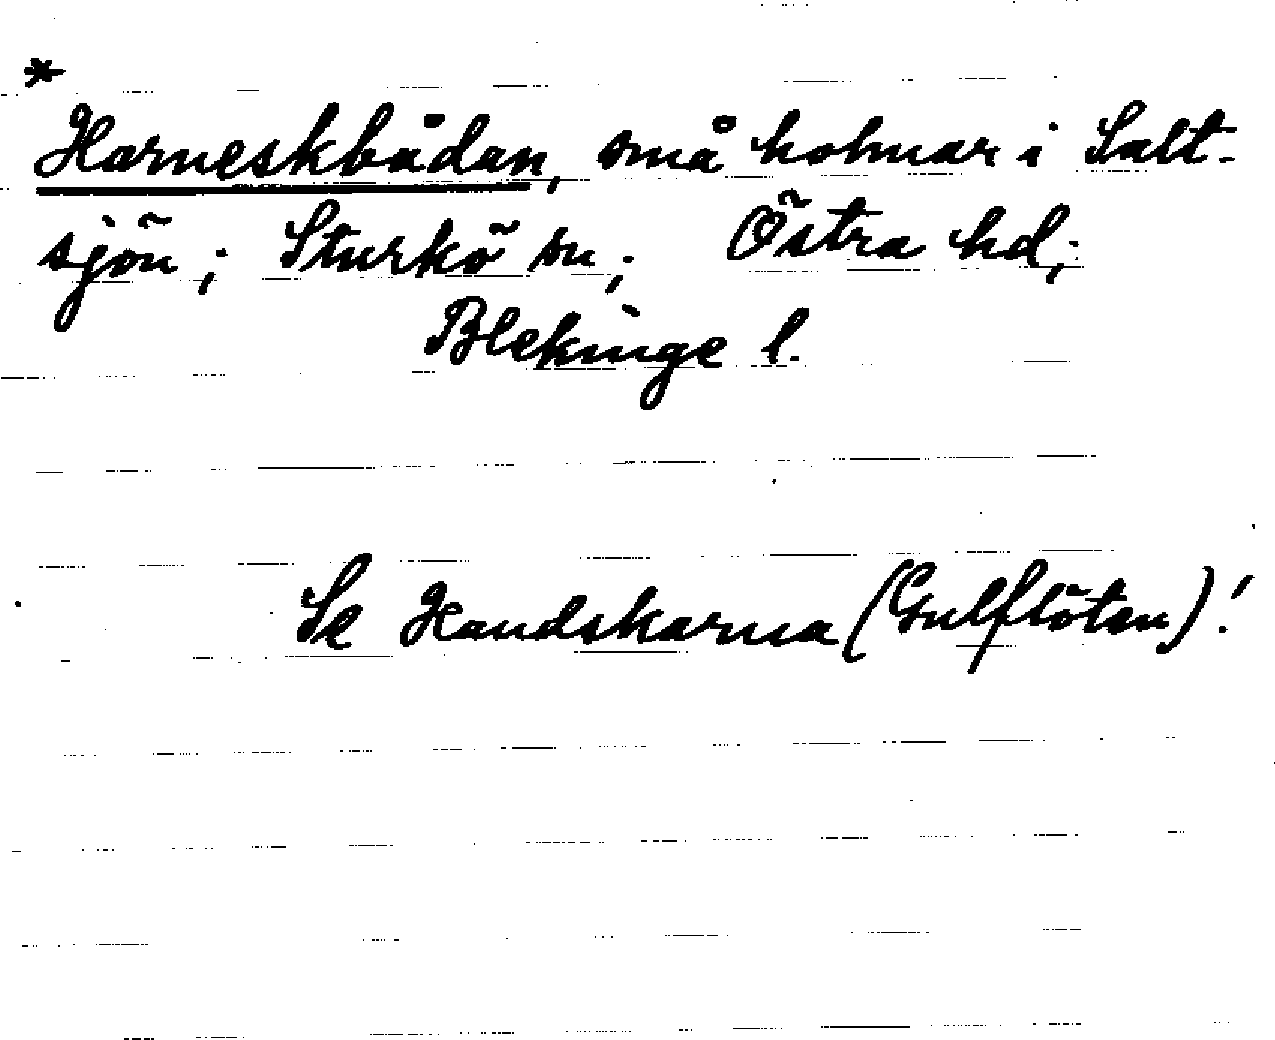 *
Harneskbådan, små holmar i Salt-
sjön; Sturkö sn; Östra hd;
Blekinge l.
Se Handskarna (Gulflöten)!